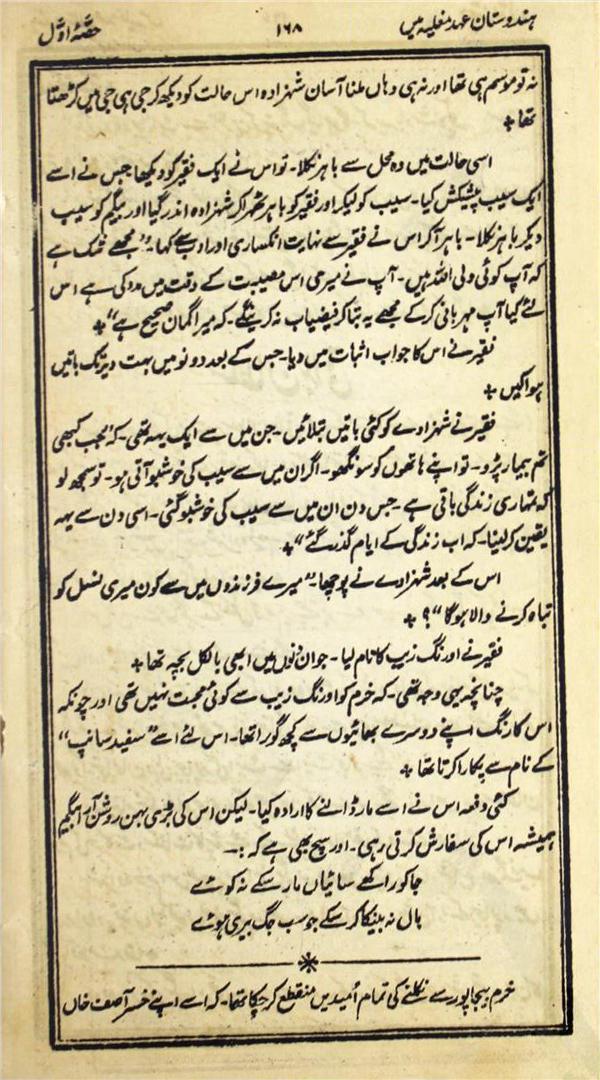 ہندوستان عہد مغلیہ میں
۱۶۸
حصّۂ اوّل
نہ تو موسم ہی تھا اور نہ ہی وہاں ملنا آسان شہزادہ اس حالت کو دیکھ کر جی ہی جی میں کڑھتا
تھا +
اسی حالت میں وہ محل سے باہر نکلا۔ تو اس نے ایک فقیر کو دیکھا جس نے اسے
ایک سیب پیشکش کیا۔ سیب کو لیکر اور فقیر کو باہر ٹھہرا کر شہزادہ اندر گیا اور بیگم کو سیب
دیکر باہر نکلا۔ باہر آکر اس نے فقیر سے نہایت انکساری اور ادب سے کہا۔ "مجھے شک ہے
کہ آپ کوئی ولی اللہ ہیں۔ آپ نے میری اس مصیبت کے وقت میں مدد کی ہے اس
لئے کیا آپ مہربانی کر کے مجھے یہ بتا کر فیضیاب نہ کرینگے۔ کہ میرا گمان صحیح ہے" +
فقیر نے اس کا جواب اثبات میں دیا۔ جس کے بعد دونو میں بہت دیر تک باتیں
ہوا کیں +
فقیر نے شہزادے کو کئی باتیں بتلائیں۔ جن میں سے ایک یہہ تھی۔ کہ "جب کبھی
تم بیمار پڑو۔ تو اپنے ہاتھوں کو سونگھو۔ اگر ان میں سے سیب کی خوشبو آتی ہو۔ تو سمجھ لو
کہ تمہاری زندگی باقی ہے۔ جس دن ان میں سے سیب کی خوشبو گئی۔ اسی دن سے یہہ
یقین کر لینا۔ کہ اب زندگی کے ایام گذر گئے" +
اس کے بعد شہزادے نے پوچھا۔ "میرے فرزندوں میں سے کون میری نسل کو
تباہ کرنے والا ہوگا"؟ +
فقیر نے اورنگ زیب کا نام لیا۔ جو ان دنوں میں ابھی بالکل بچہ تھا +
چنانچہ یہی وجہ تھی۔ کہ خرم کو اورنگ زیب سے کوئی محبت نہیں تھی اور چونکہ
اس کا رنگ اپنے دوسرے بھائیوں سے کچھ گورا تھا۔ اس لئے اسے "سفید سانپ"
کے نام سے پکارا کرتا تھا +
کئی دفعہ اس نے اسے مار ڈالنے کا ارادہ کیا۔ لیکن اس کی بڑی بہن روشن آرا بیگم
ہمیشہ اس کی سفارش کرتی رہی۔ اور سچ بھی ہے کہ :۔
جا کو راکھے سائیاں مار سکے نہ کوئے
بال نہ بینکا کر سکے جو سب جگ بیری ہوئے
خرم بیجاپور سے نکلنے کی تمام اُمیدیں منقطع کر چکا تھا۔ کہ اسے اپنے خسر آصف خاں